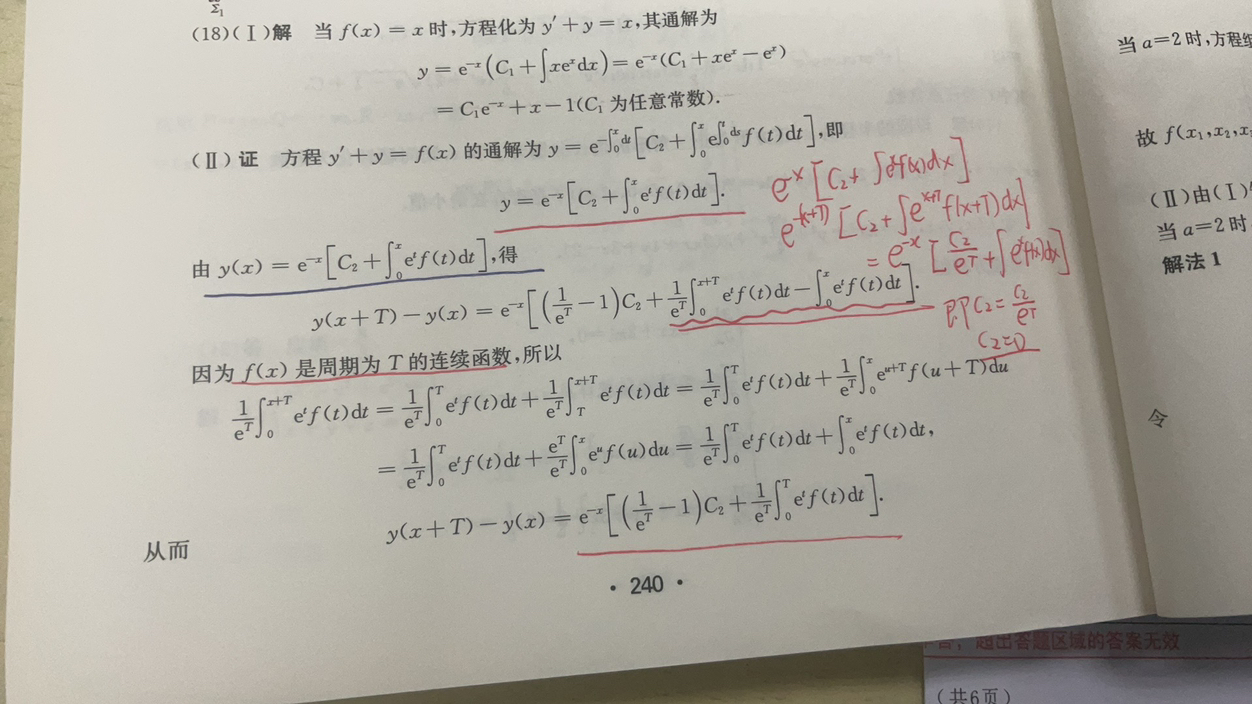 Σ₁
(18)(Ⅰ)解 当 f(x) = x 时,方程化为 y′ + y = x,其通解为
y = e⁻ˣ(C₁ + ∫xeˣdx) = e⁻ˣ(C₁ + xeˣ − eˣ)
= C₁e⁻ˣ + x − 1(C₁ 为任意常数).
(Ⅱ)证 方程 y′ + y = f(x) 的通解为 y = e^{−∫₀ˣdt}[C₂ + ∫₀ˣ e^{∫₀ᵗds} f(t)dt],即
y = e⁻ˣ[C₂ + ∫₀ˣ eᵗf(t)dt].
eˣ[C₂ + ∫eˣf(x)dx]
e^{-(x+T)}[C₂ + ∫e^{x+T}f(x+T)dx]
= e^{-x}[C₂/e^T + ∫eˣf(x)dx]
由 y(x) = e⁻ˣ[C₂ + ∫₀ˣ eᵗf(t)dt],得
y(x + T) − y(x) = e⁻ˣ[(1/e^T − 1)C₂ + 1/e^T ∫₀^{x+T} eᵗf(t)dt − ∫₀ˣ eᵗf(t)dt].
即 C₂ = C₂/e^T
C₂=0
因为 f(x) 是周期为 T 的连续函数,所以
1/e^T ∫₀^{x+T} eᵗf(t)dt = 1/e^T ∫₀^T eᵗf(t)dt + 1/e^T ∫_T^{x+T} eᵗf(t)dt = 1/e^T ∫₀^T eᵗf(t)dt + 1/e^T ∫₀ˣ e^{u+T} f(u + T)du
= 1/e^T ∫₀^T eᵗf(t)dt + e^T/e^T ∫₀ˣ eᵘf(u)du = 1/e^T ∫₀^T eᵗf(t)dt + ∫₀ˣ eᵗf(t)dt,
从而 y(x + T) − y(x) = e⁻ˣ[(1/e^T − 1)C₂ + 1/e^T ∫₀^T eᵗf(t)dt].
· 240 ·
当 a=2 时,方程
故 f(x₁,x₂,x
(Ⅱ)由(Ⅰ)
当 a=2 时
解法 1
令
超出答题区域的答案无效
(共6页)